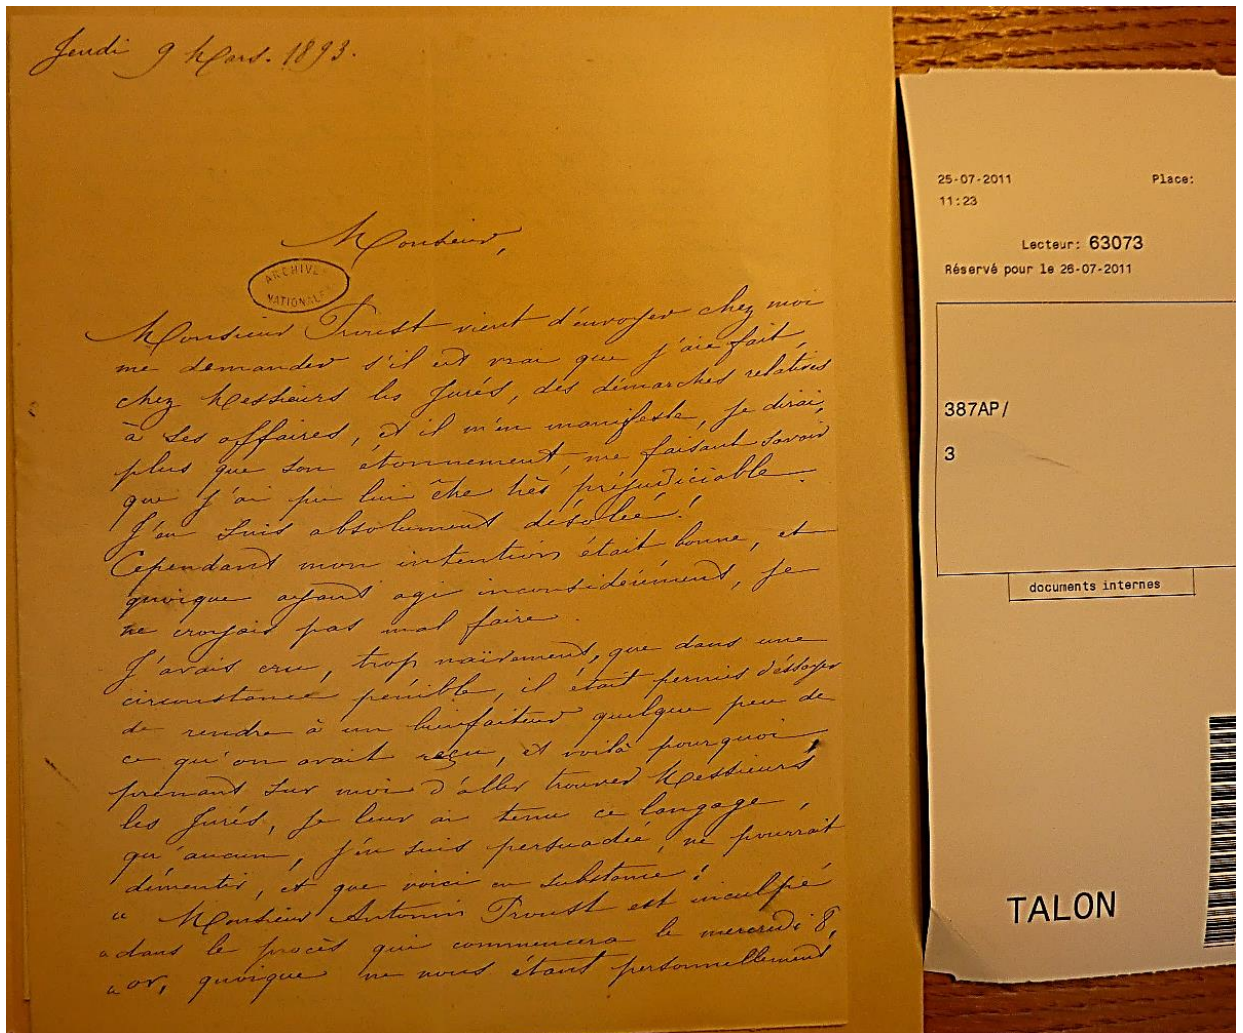 Jeudi 9 Mars. 1893.
Monsieur,
ARCHIVES
NATIONALES
Monsieur Proust vient d'envoyer chez moi
me demander s'il est vrai que j'aie fait,
chez Messieurs les Jurés, des démarches relatives
à ses affaires, et il m'en manifeste, je dirai,
plus que son étonnement, me faisant savoir
que j'ai pu lui être très préjudiciable.
J'en suis absolument désolée!
Cependant mon intention était bonne, et
quoique ayant agi inconsidérément, je
ne croyais pas mal faire.
J'avais cru, trop naïvement, que dans une
circonstance pénible, il était permis d'éssayer
de rendre à un bienfaiteur quelque peu de
ce qu'on avait reçu, et voilà pourquoi
prenant sur moi d'aller trouver Messieurs
les Jurés, je leur ai tenu ce langage,
qu'aucun, j'en suis persuadée, ne pourrait
démentir, et que voici en substance:
" Monsieur Antonin Proust est inculpé
" dans le procès qui commencera le mercredi 8,
" or, quoique ne nous étant personnellement
25-07-2011 Place:
11:23
Lecteur: 63073
Réservé pour le 26-07-2011
387AP/
3
documents internes
TALON